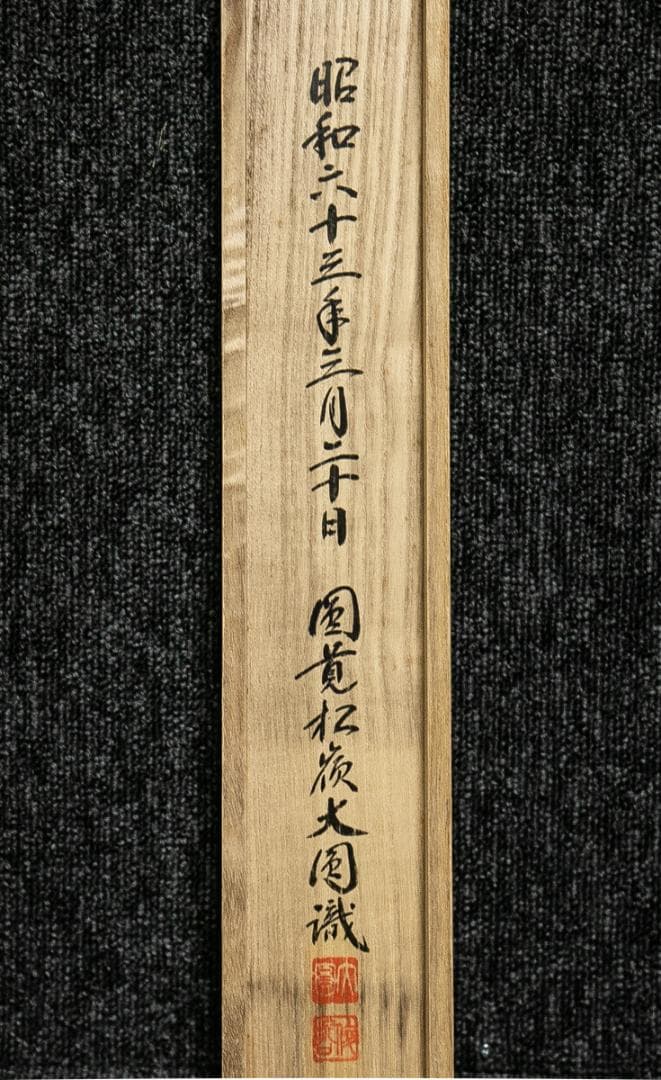 昭和六十三年三月二十日 圓覚松嶺大圓識